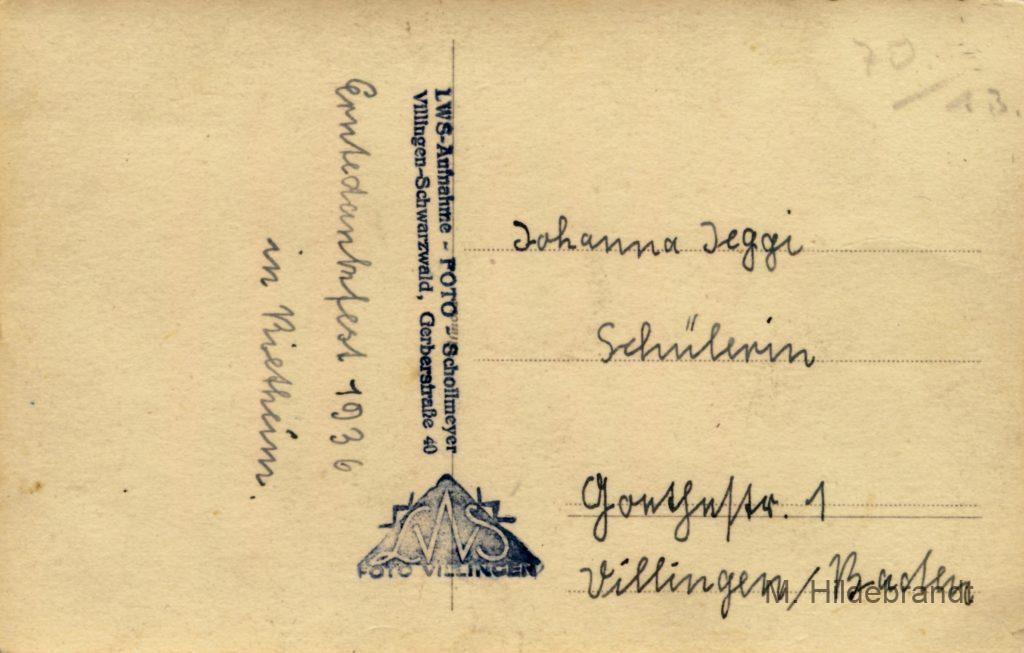 Erntedankfest 1936
in Rietheim.
LWS-Aufnahme - FOTO - Schollmeyer
Villingen-Schwarzwald, Gerberstraße 40
LWS
FOTO VILLINGEN
70
13.
Johanna Jeggi
Schülerin
Goethestr. 1
Villingen/Baden
M. Hildebrandt